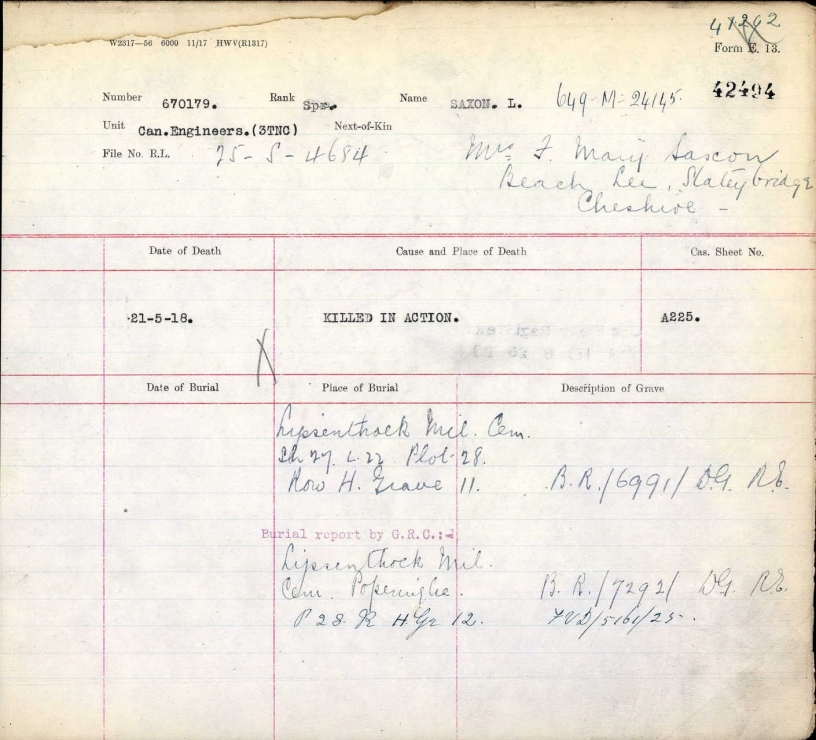 41242
W2317—56 6000 11/17 HWV(R1317)
Form E. 13.
42494
Number 670179. Rank Spr. Name SAXON. L. 649-M-24145.
Unit Can.Engineers.(3TNC) Next-of-Kin
File No. R.L. 25-S-4684 Mrs F. Mary Saxon
Beach Lee, Stateybridge
Cheshire -
Date of Death Cause and Place of Death Cas. Sheet No.
21-5-18. KILLED IN ACTION. A225.
Date of Burial Place of Burial Description of Grave
Lijssenthock Mil. Cem.
Sh 27. L.22 Plot 28.
Row H. Grave 11. B.R./6991/ D.G. R.E.
Burial report by G.R.C.:-
Lijssenthock Mil.
Cem. Poperinghe. B.R./7292/ D.G. R.E.
P 28. R H. Gr 12. FVD/5161/25.